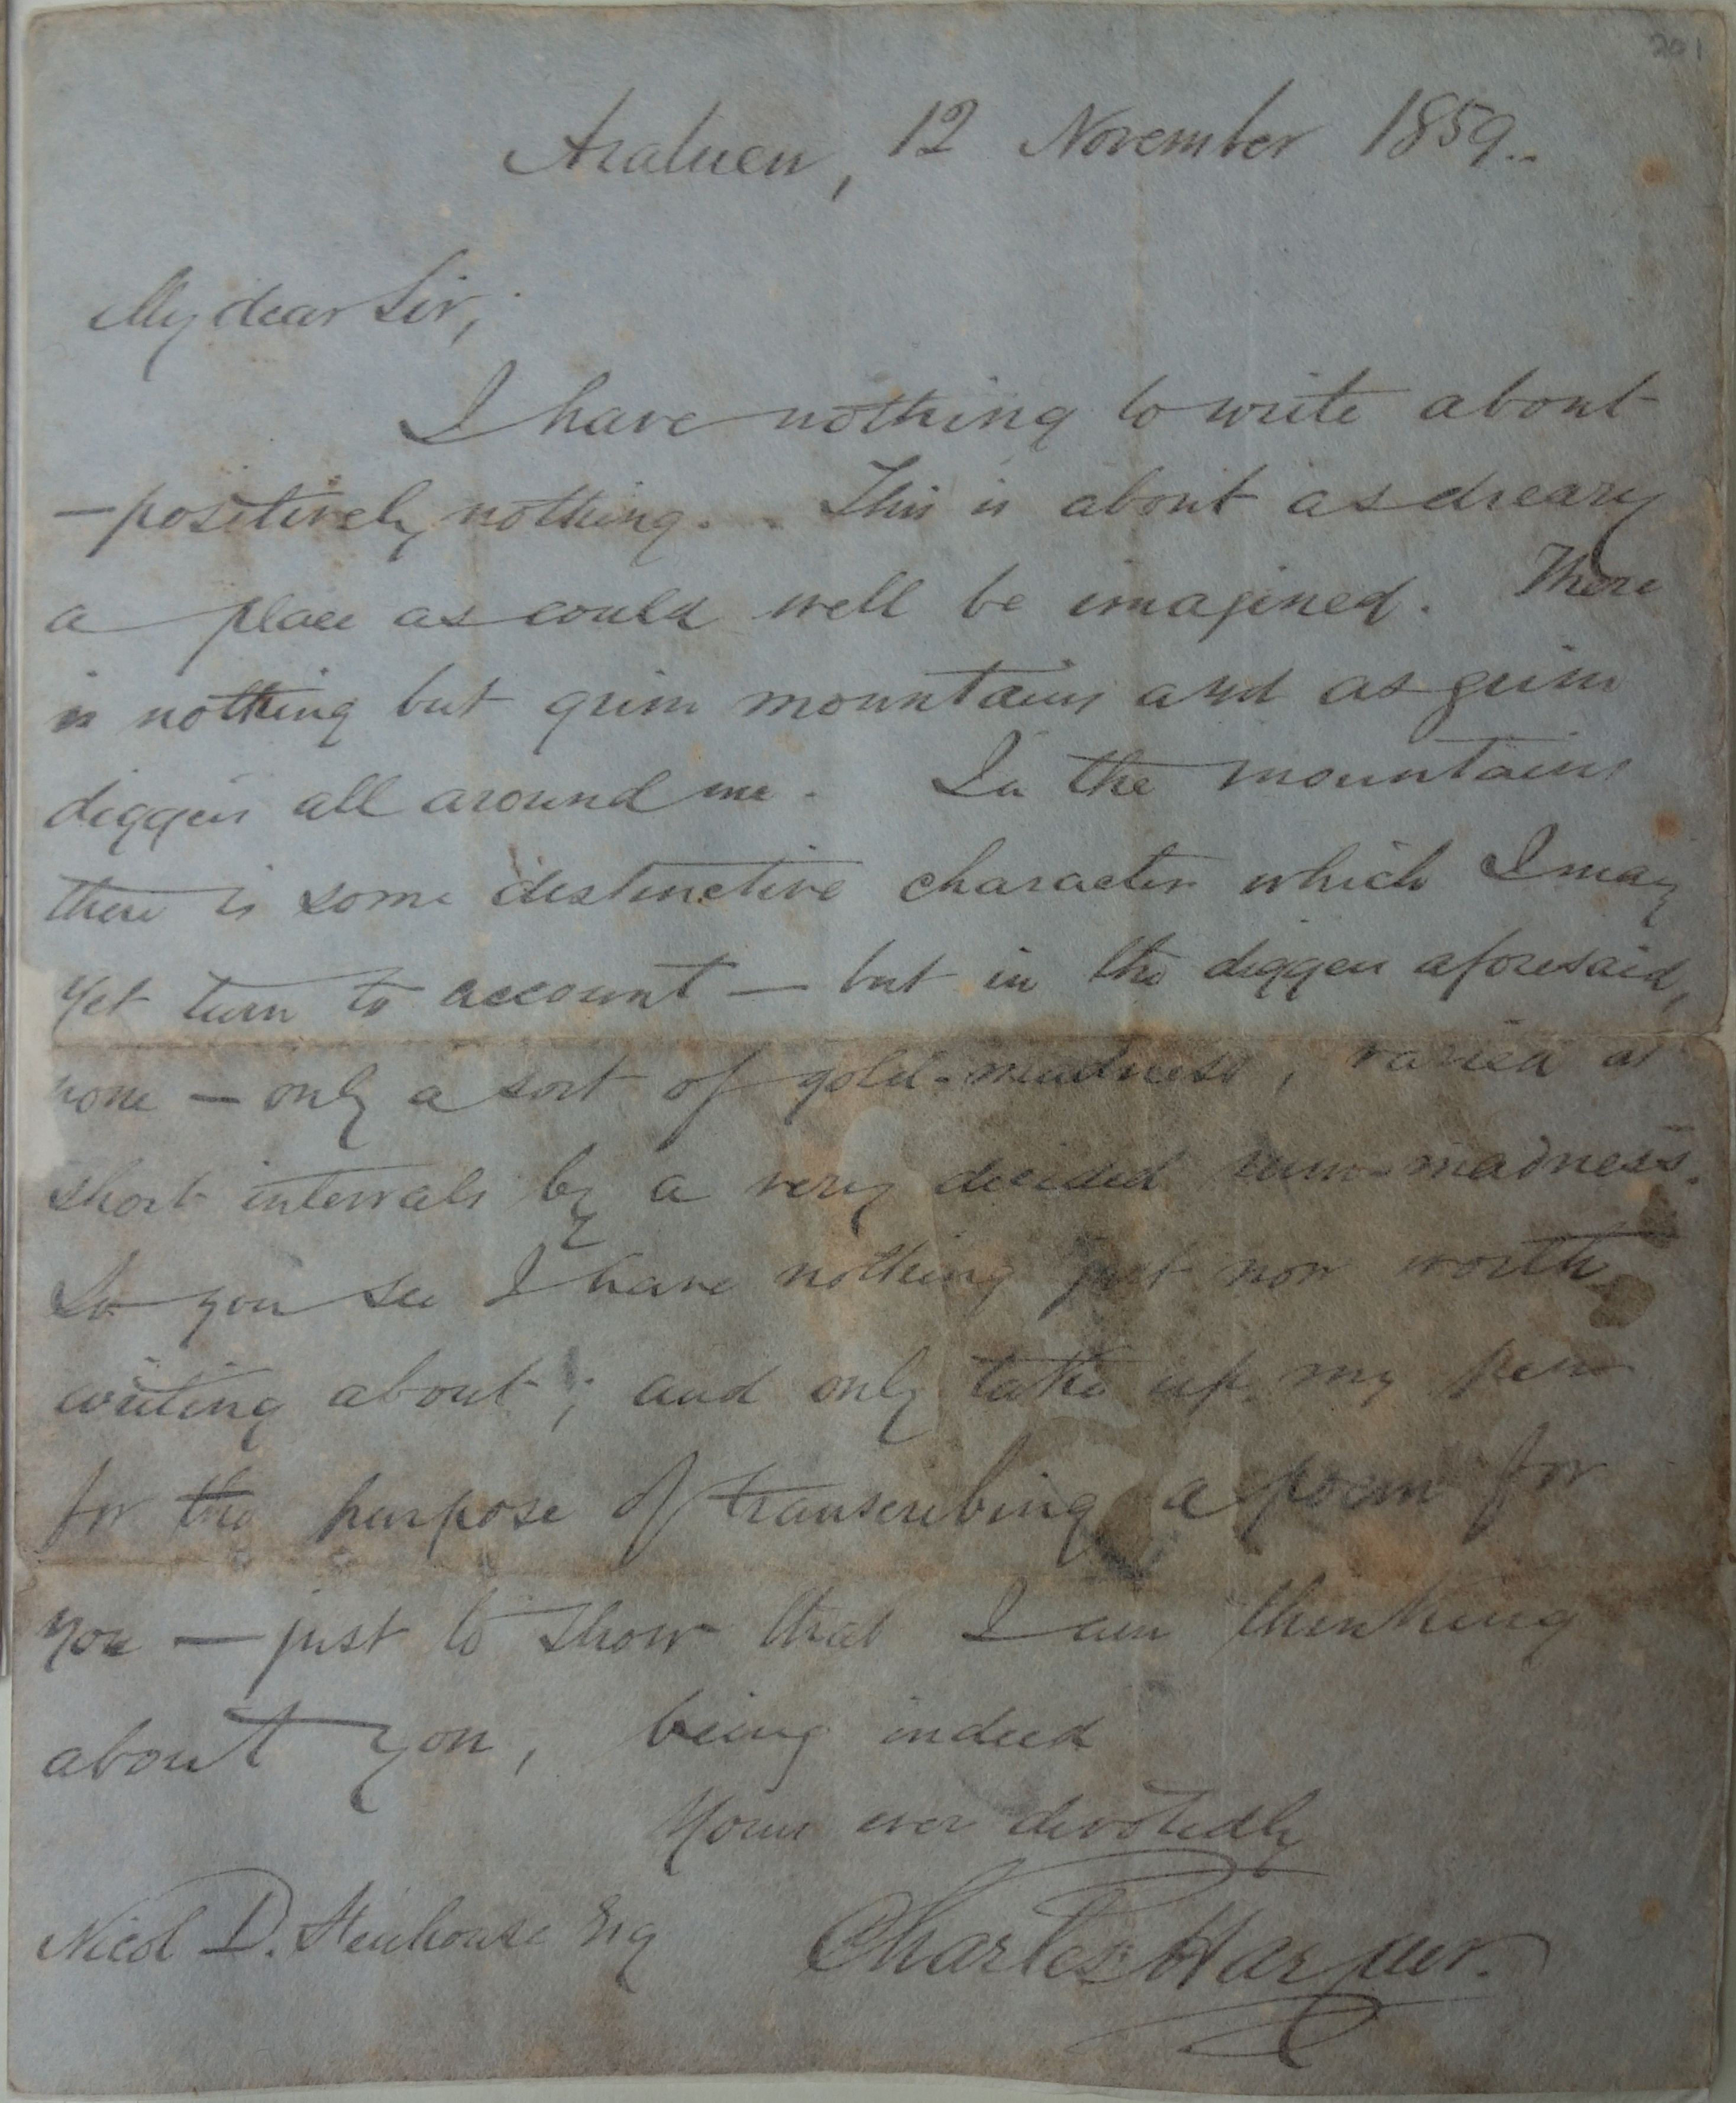 201
Araluen, 12 November 1859..
My dear Sir,
I have nothing to write about
— positively nothing. This is about as dreary
a place as could well be imagined. There
is nothing but grim mountains and as grim
diggers all around me. In the mountains
there is some distinctive character which I may
yet turn to account — but in the diggers aforesaid,
none — only a sort of gold-madness, varied at
short intervals by a very decided rum-madness.
So you see I have nothing just now worth
writing about; and only take up my pen
for the purpose of transcribing a poem for
you — just to show that I am thinking
about you, being indeed
Yours ever devotedly
Nicol D. Stenhouse Esq Charles Harpur.